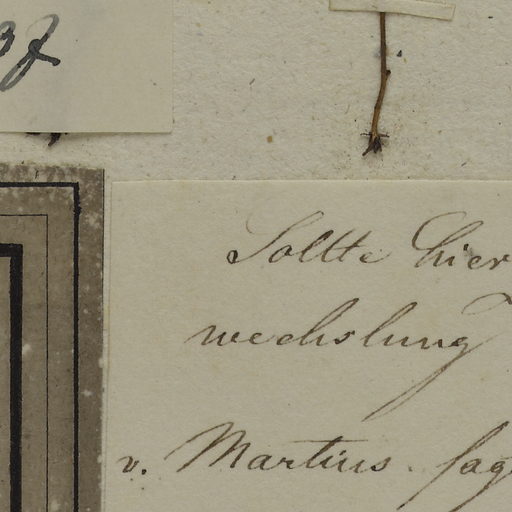 Sollte hier
wechslung
v. Martius sag